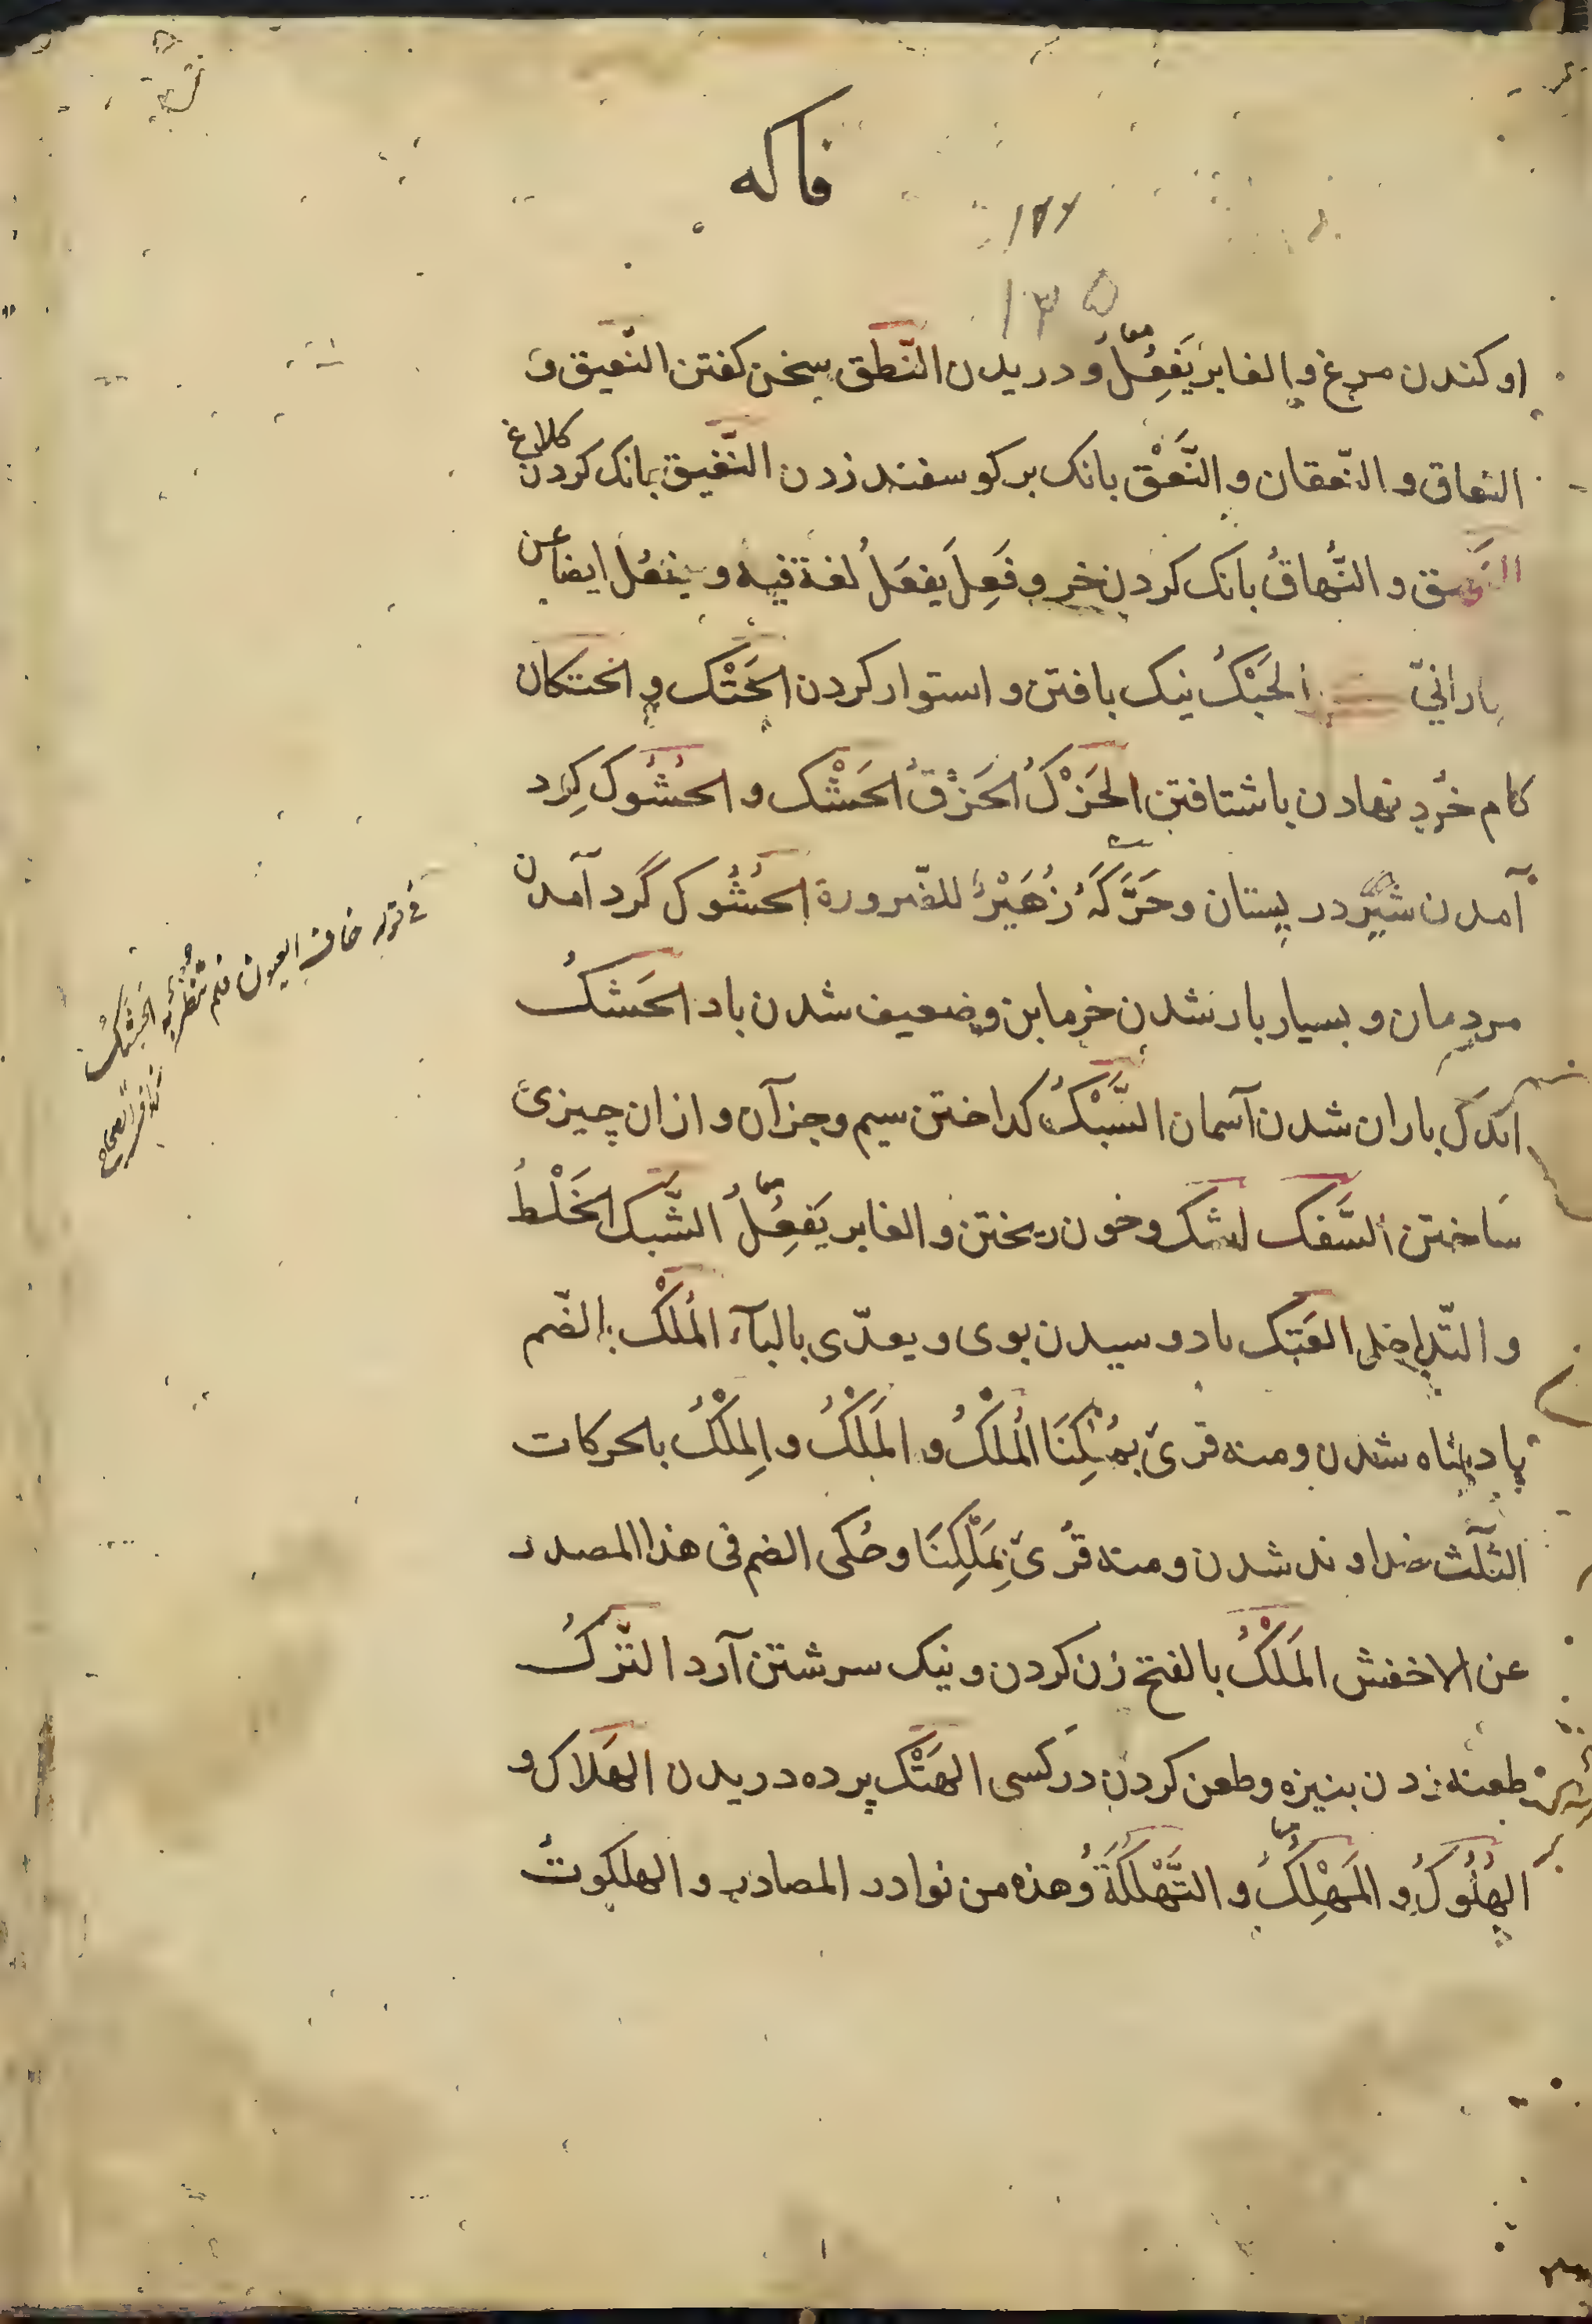 فاكه
۱۲۶
۱۳۵
او كندن مرغ و الغابر يَفعِلُ و دريدن النّطق سخن كفتن النّعيق و
النعاق و النّعقان و النَّعْق بانك بر كوسفند زدن النّغيق بانك كردن كلاغ
و النُّهاقُ بانك كردن خر و فَعِلَ يَفعَلُ لغة فيه و ينعُل ايضا عن
بارانيّ الحَبْكُ نيك بافتن و استوار كردن الحَتْك و الحتكان
كام خُرد نهادن با شتافتن الحَزْكُ الحَزْقُ الحَشْك و الحُشُوك كِرد
آمدن شير در پستان و حَرَّكَهُ زُهَيْرٌ للضّرورة الحُشُوك گرد آمدن
مردمان و بسيار بار شدن خرمابن و ضعيف شدن باد الحَشكُ
اندك باران شدن آسمان السَّبْكُ كداختن سيم و جز آن و از ان چيزى
سَاختن السَّفك اشك و خون ريختن و الغابر يَفعِلُ الشّبك الخَلْطُ
و التّداخل العَبَك بادوسيدن بوى و يعدّى بالبآء المُلْك بالضّم
پادشاه شدن و منه قرئ بِمُلْكِنَا المُلْكُ و المَلْكُ و المِلْكُ بالحركات
الثَّلث خداوند شدن و منه قُرئَ بِمَلْكِنَا و حُكى الضم فى هذا المصدر
عن الاخفش المَلْكُ بالفتح زن كردن و نيك سرشتن آرد النّزكُ
طعنه زدن بنيزه و طعن كردن در كسى الهَتْك پرده دريدن الهَلاك و
الهُلُوكُ و المَهْلِكُ و التَّهْلُكَةُ و هذه من نوادر المصادر و الهلكوتُ
خاف العيون فلم تُنظر به الحَشَكُ